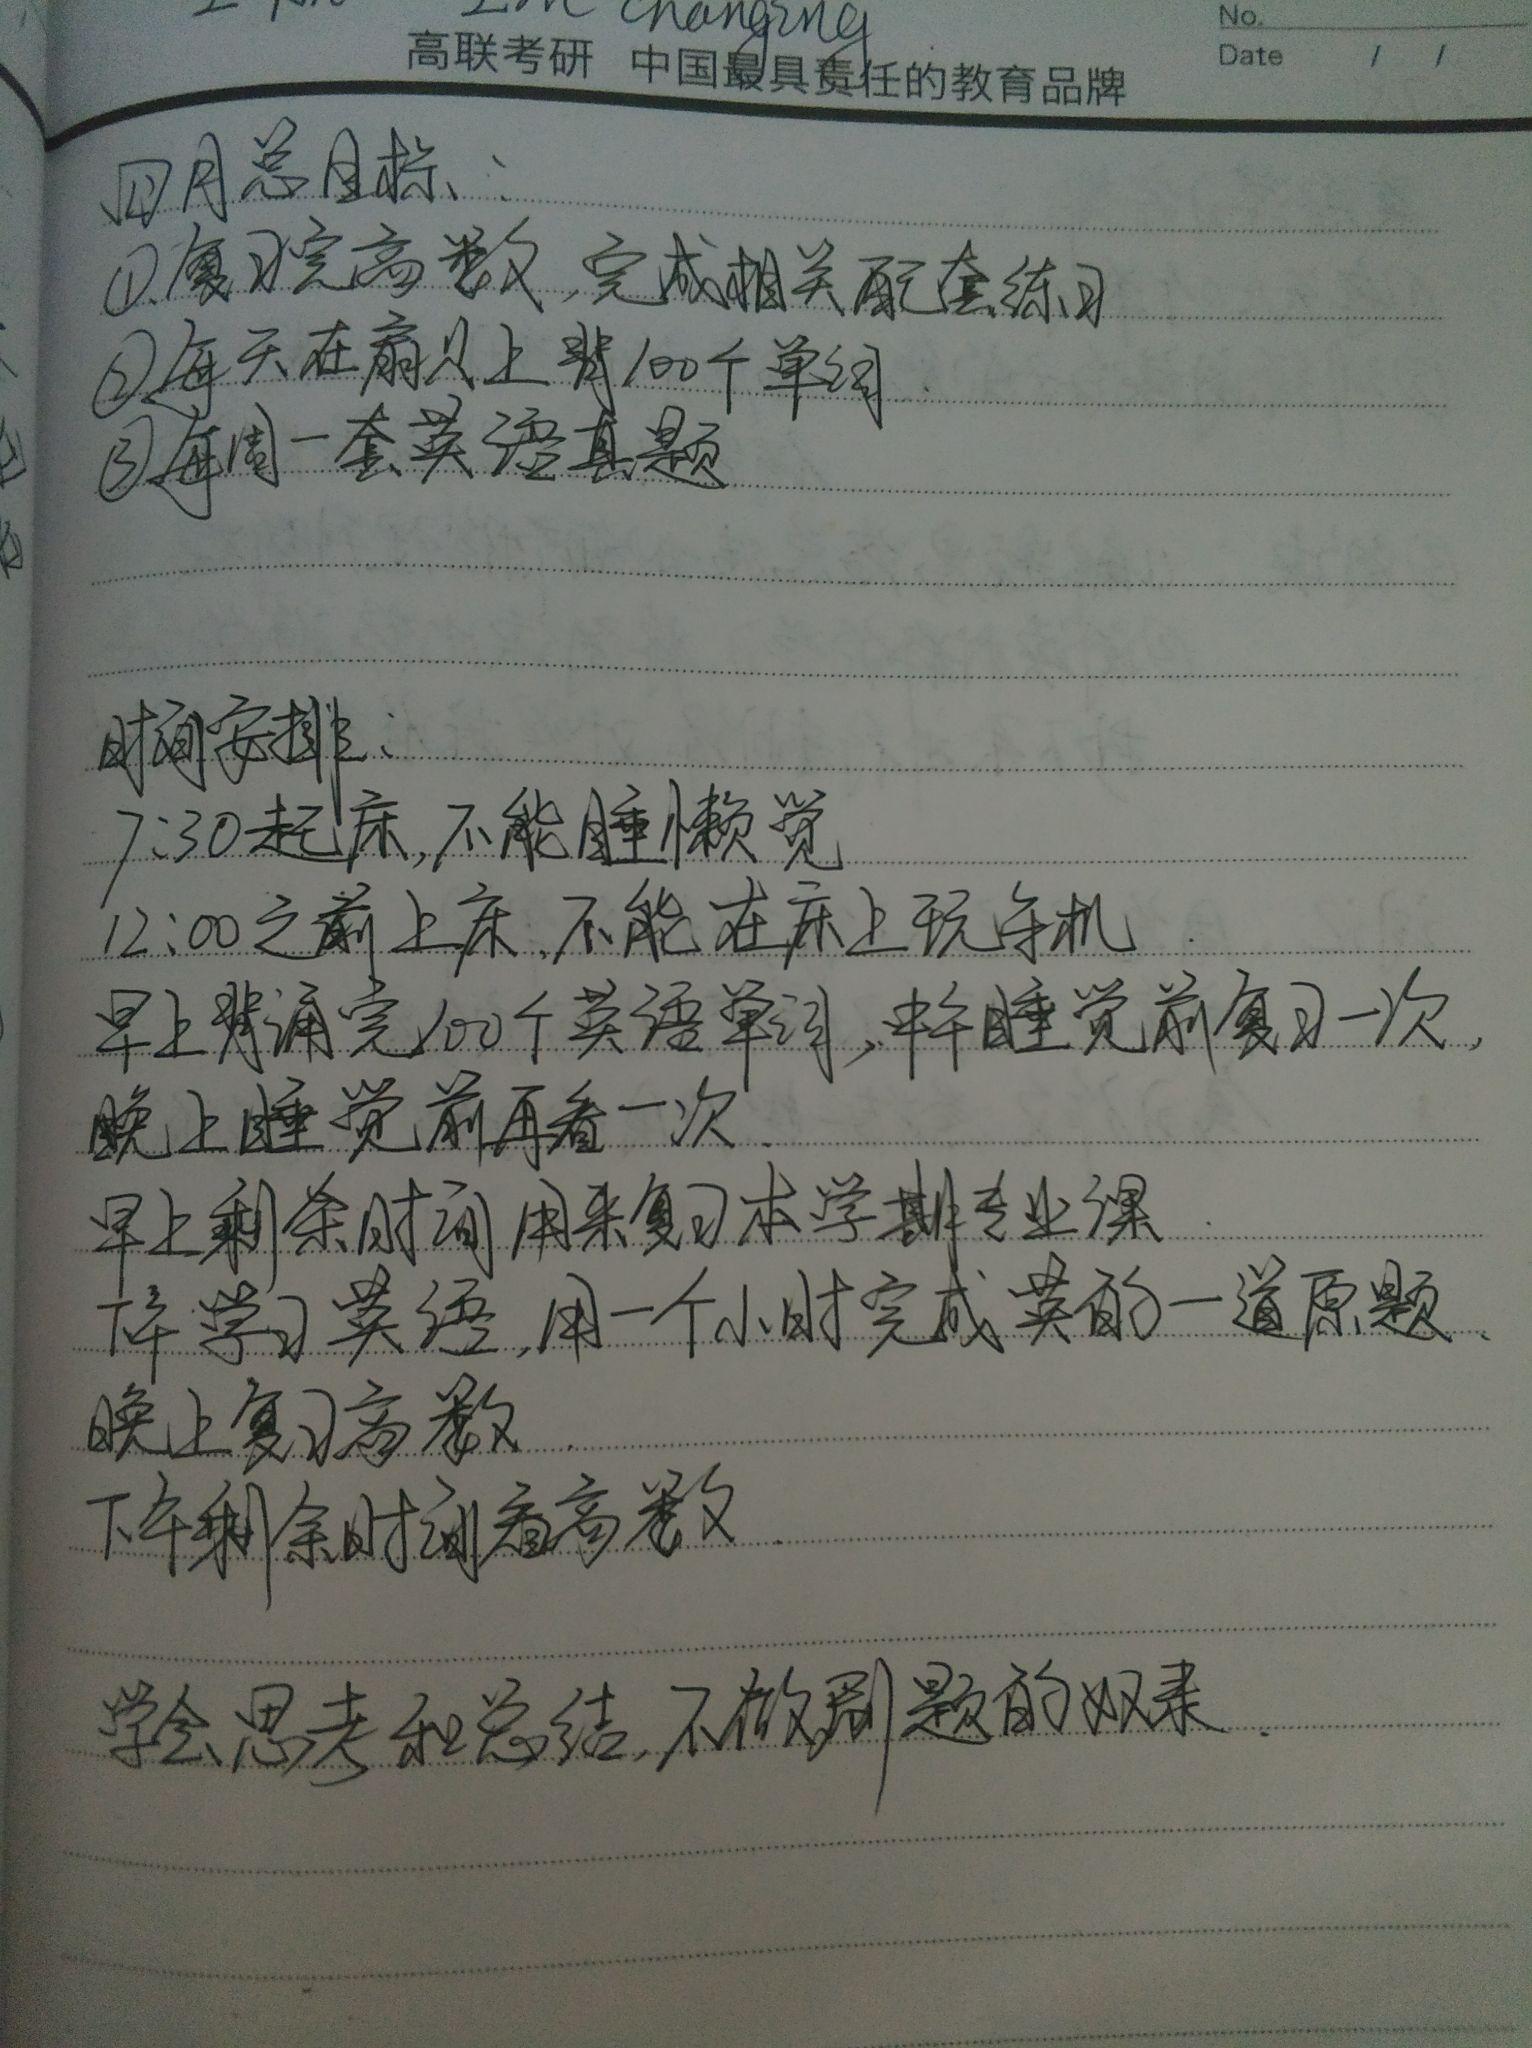 I'm changing
No.
高联考研 中国最具责任的教育品牌
Date / /
四月总目标:
①.复习完高数,完成相关配套练习
②每天在扇贝上背100个单词.
③每周一套英语真题
时间安排:
7:30起床,不能睡懒觉
12:00之前上床,不能在床上玩手机.
早上背诵完100个英语单词,中午睡觉前复习一次,
晚上睡觉前再看一次.
早上剩余时间用来复习本学期专业课.
下午学习英语,用一个小时完成英的一道原题.
晚上复习高数.
下午剩余时间看高数.
学会思考和总结,不做刷题的奴隶.